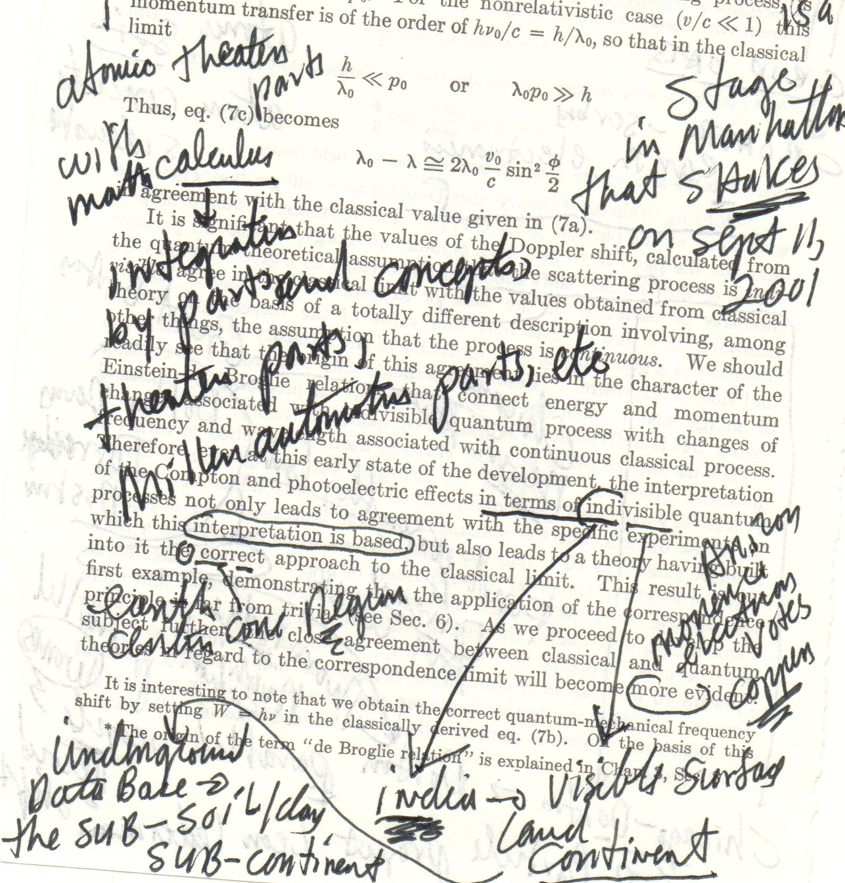 the nonrelativistic case (v/c ≪ 1) this
momentum transfer is of the order of hν₀/c = h/λ₀, so that in the classical
limit
h/λ₀ ≪ p₀ or λ₀p₀ ≫ h
Thus, eq. (7c) becomes
λ₀ − λ ≅ 2λ₀ v₀/c sin² φ/2
agreement with the classical value given in (7a).
It is significant that the values of the Doppler shift, calculated from
the quantum theoretical assumption the scattering process is
agree in the classical limit with the values obtained from classical
theory on the basis of a totally different description involving, among
other things, the assumption that the process is continuous. We should
readily see that the origin of this agreement lies in the character of the
Einstein-de Broglie relations that connect energy and momentum
changes associated with indivisible quantum process with changes of
frequency and wavelength associated with continuous classical process.
Therefore even at this early state of the development, the interpretation
of the Compton and photoelectric effects in terms of indivisible quantum
processes not only leads to agreement with the specific experiments on
which this interpretation is based, but also leads to a theory having built
into it the correct approach to the classical limit. This result is our
first example, demonstrating that the application of the correspondence
principle is far from trivial (see Sec. 6). As we proceed to the
subject further close agreement between classical and quantum
theories in regard to the correspondence limit will become more evident.
It is interesting to note that we obtain the correct quantum-mechanical frequency
shift by setting W = hν in the classically derived eq. (7b). On the basis of this
* The origin of the term "de Broglie relation" is explained in Chap. 3,
is a
atomic theater
parts
with
math calculus
integration
by parts end concepts,
theater parts,
Miller automotive parts, etc
Stage
in Manhattan
that SHAKES
on Sept 11,
2001
earth
center cone Region
money
electrons
votes
copper
Underground
Data Base →
the SUB-SOIL/clay
SUB-continent
india → visible surface
land
Continent